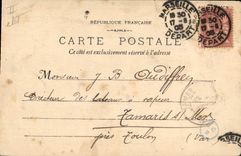 RÉPUBLIQUE FRANÇAISE
CARTE POSTALE
Ce côté est exclusivement réservé à l'adresse
MARSEILLE
DEPART
MARSEILLE
DEPART
Monsieur J B Audiffrey
Directeur des bateaux à vapeur
Tamaris s/ Mer
près Toulon (Var